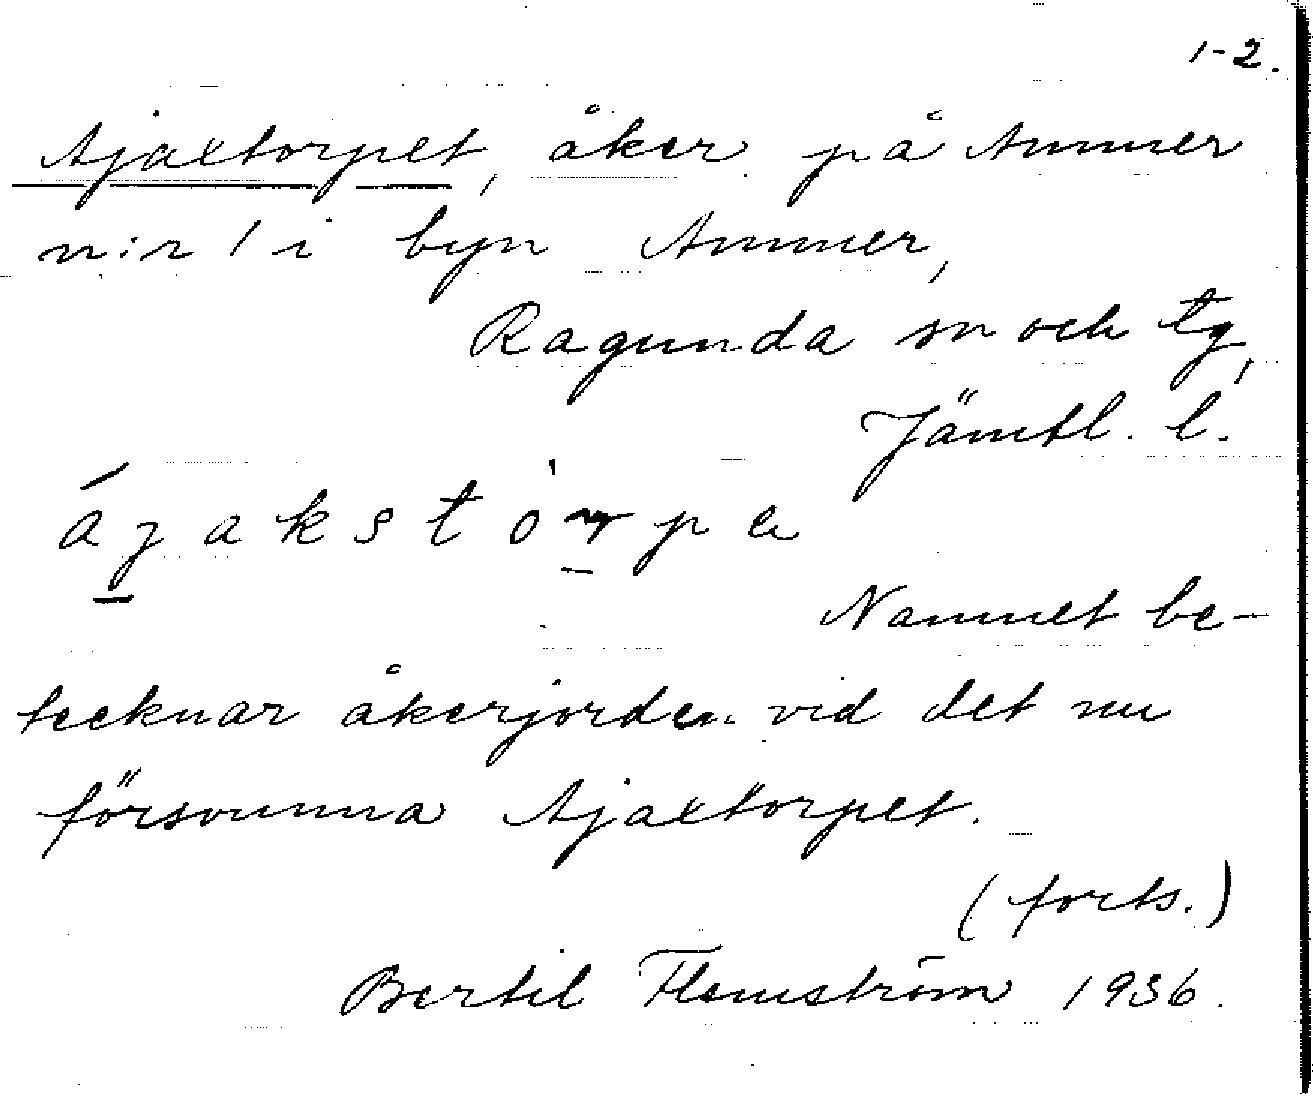 1-2.
Ajaxtorpet, åker på Ammer
n:r 1 i byn Ammer,
Ragunda sn och tg,
Jämtl. l.
Namnet be-
tecknar åkerjorden vid det nu
försvunna Ajaxtorpet.
(forts.)
Bertil Flemström 1936.